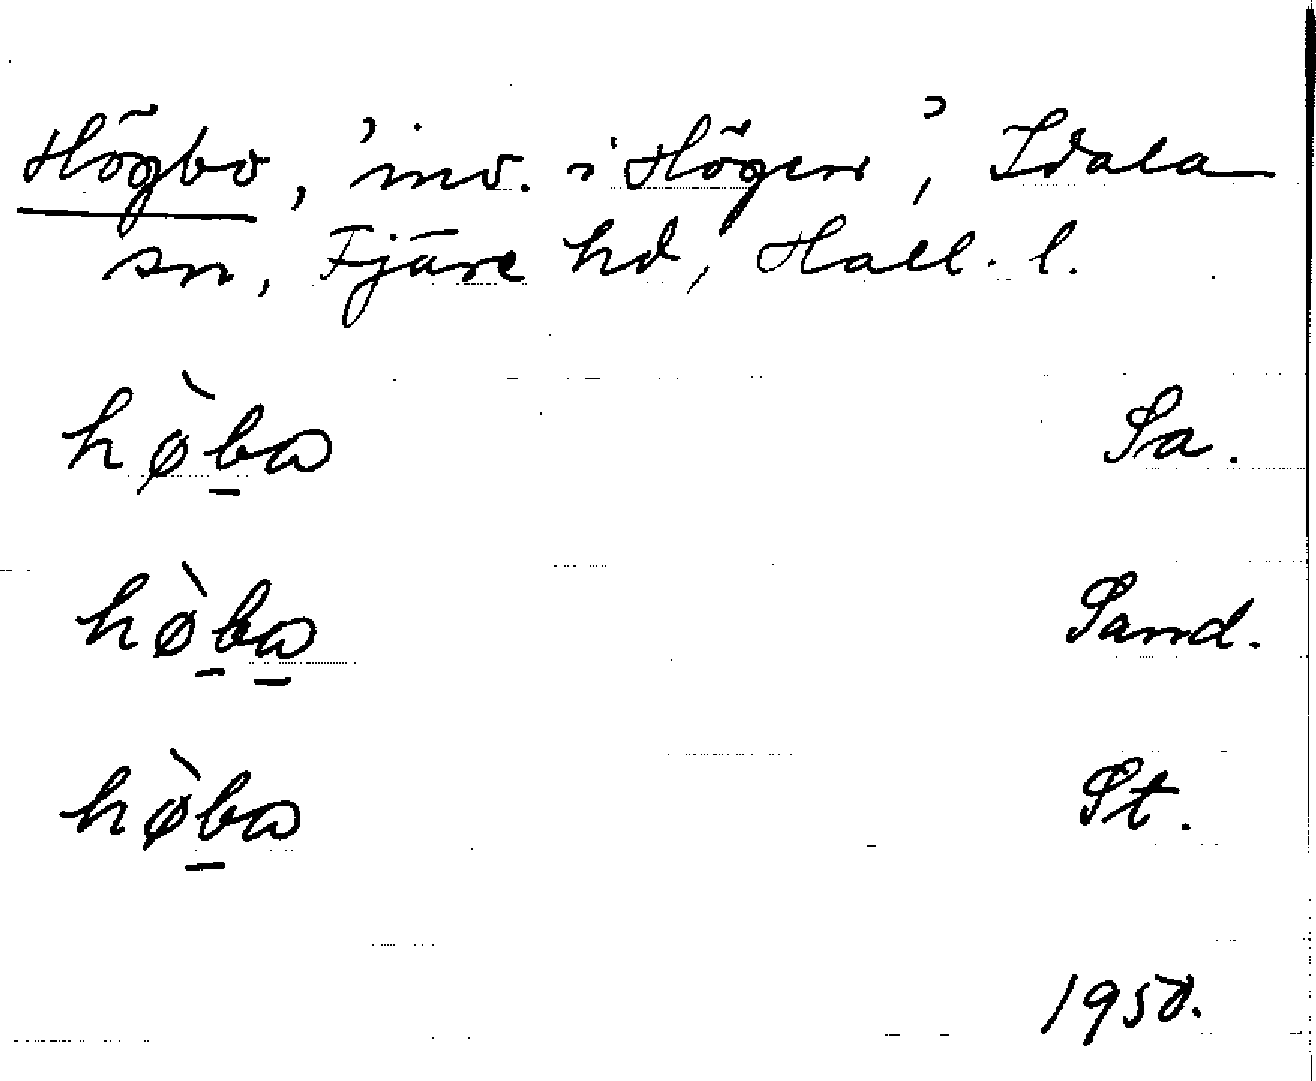 Högbo, 'inv. i Högen', Idala
sn, Fjäre hd, Hall. l.
hø̀ba Sa.
hø̀ba Sand.
hø̀ba St.
1950.